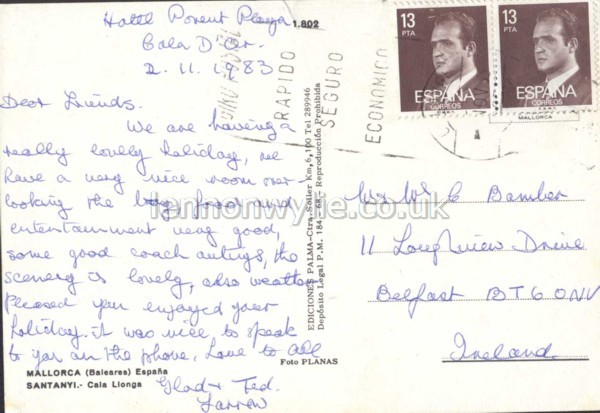 Hotel Ponent Playa
Cala D'Or.
2.11.1983
1.802
Dear Friends.
We are having a
really lovely holiday, we
have a very nice room over
looking the bay, food and
entertainment very good,
some good coach outings, the
scenery is lovely, also weather
Pleased you enjoyed your
holiday. it was nice to speak
to you on the phone, Love to all
Glad + Ted.
MALLORCA (Baleares) España
SANTANYI.- Cala Llonga
Foto PLANAS
EDICIONES PALMA-Ctra.Soller Km,6,100 Tel 289946
Depósito Legal P.M. 184 - 68.- Reproducción Prohibida
RAPIDO
SEGURO
ECONOMICO
13
PTA
ESPAÑA
CORREOS
13
PTA
ESPAÑA
CORREOS
MALLORCA
C Bamber
11 Longview Drive
Belfast BT6 0NV
Ireland.
lennonwylie.co.uk